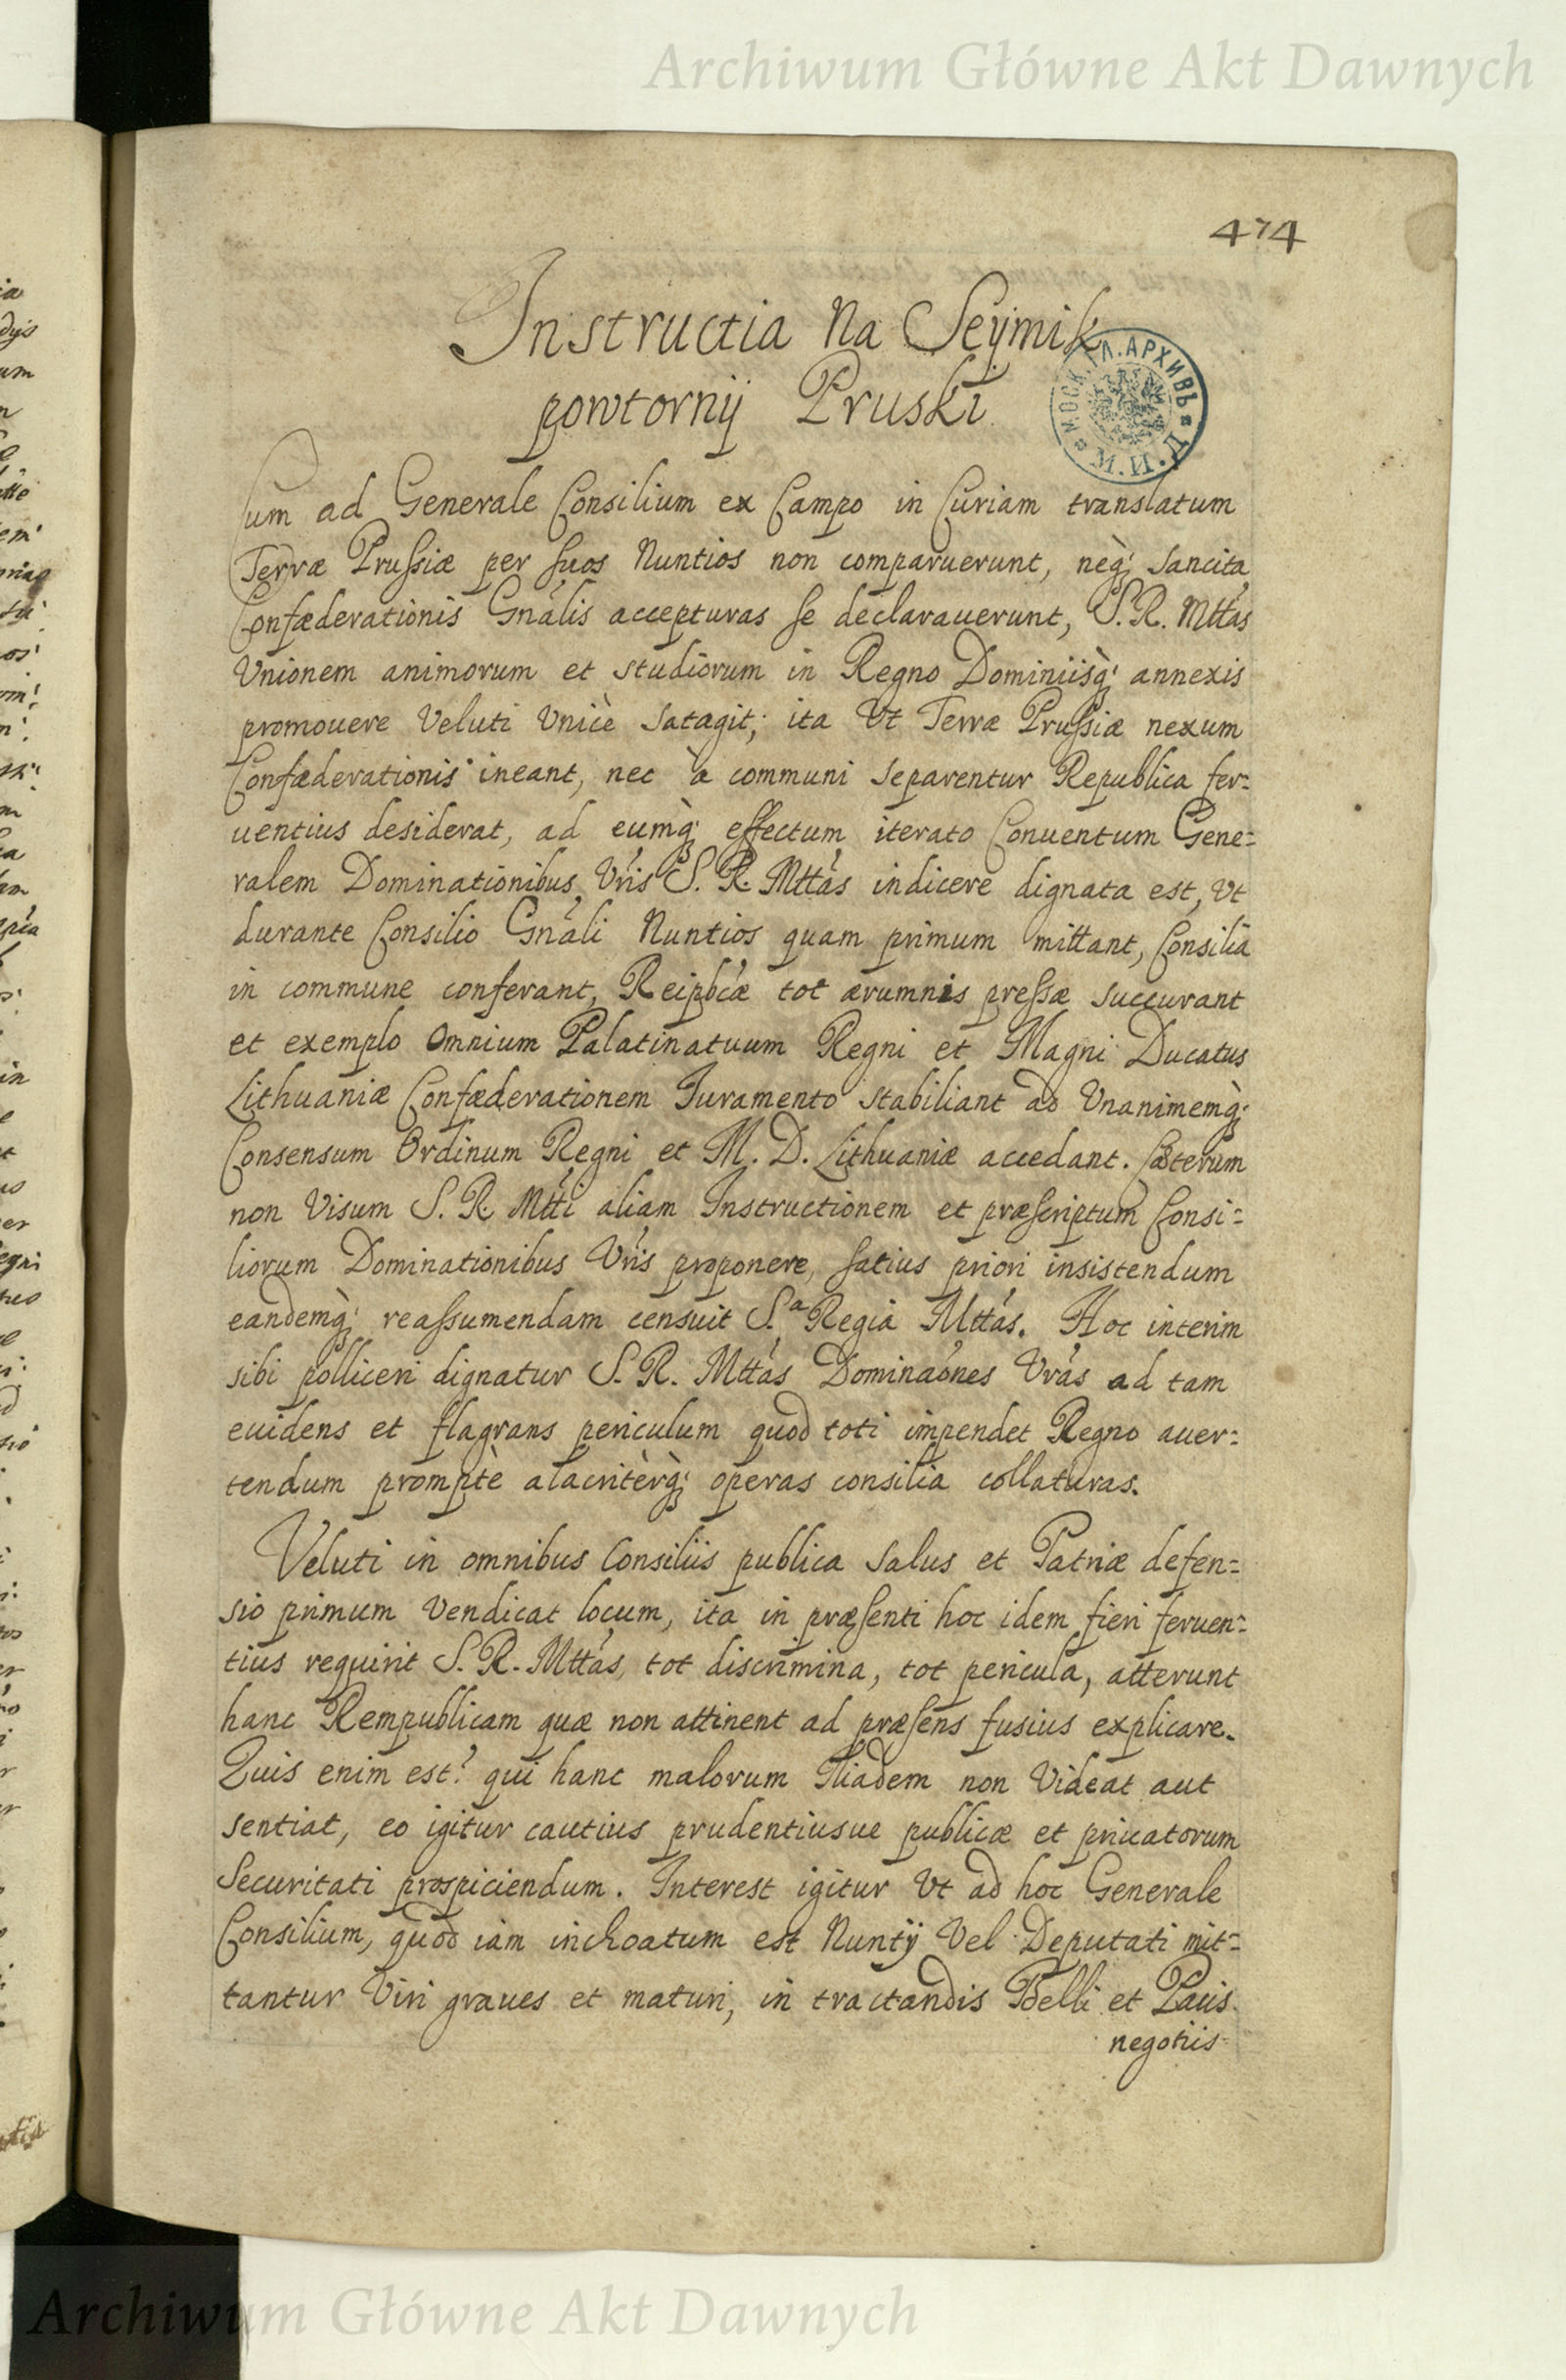 Archiwum Główne Akt Dawnych
474
Instructia Na Seÿmik
powtornÿ Pruski
МОСК. ГЛ. АРХИВЪ М. И. Д.
Cum ad Generale Consilium ex Campo in Curiam translatum
Terræ Prussiæ per suos Nuntios non comparuerunt, neq; sancita
Confæderationis Gnális accepturas se declarauerunt, S. R. Mttás
Vnionem animorum et studiorum in Regno Dominiisq; annexis
promouere Veluti Vnicè satagit; ita Vt Terræ Prussiæ nexum
Confæderationis ineant, nec à communi separentur Republica fer=
uentius desiderat, ad eumq; effectum iterato Conuentum Gene=
ralem Dominationibus Vris S. R. Mttás indicere dignata est, Vt
durante Consilio Gnáli Nuntios quam primum mittant, Consilia
in commune conferant, Reipbcæ tot ærumnis pressæ succurant
et exemplo Omnium Palatinatuum Regni et Magni Ducatus
Lithuaniæ Confæderationem Iuramento stabiliant ad Vnanimemq;
Consensum Ordinum Regni et M. D. Lithuaniæ accedant. Cæterum
non Visum S. R. Mtti aliam Instructionem et præscriptum Consi=
liorum Dominationibus Vris proponere, satius priori insistendum
eandemq; reassumendam censuit S.ª Regia Mttás. Hoc interim
sibi polliceri dignatur S. R. Mttás Dominaónes Vrás ad tam
euidens et flagrans periculum quod toti impendet Regno auer=
tendum promptè alacritèrq; operas consilia collaturas.
Veluti in omnibus Consiliis publica salus et Patriæ defen=
sio primum Vendicat locum, ita in præsenti hoc idem fieri feruen=
tius requirit S. R. Mttás, tot discrimina, tot pericula, atterunt
hanc Rempublicam quæ non attinent ad præsens fusius explicare.
Quis enim est? qui hanc malorum Iliadem non Videat aut
sentiat, eo igitur cautius prudentiusue publicæ et priuatorum
Securitati prospiciendum. Interest igitur Vt ad hoc Generale
Consilium, quod iam inchoatum est Nuntÿ Vel Deputati mit=
tantur Viri graues et maturi, in tractandis Belli et Pacis
negotiis
Archiwum Główne Akt Dawnych